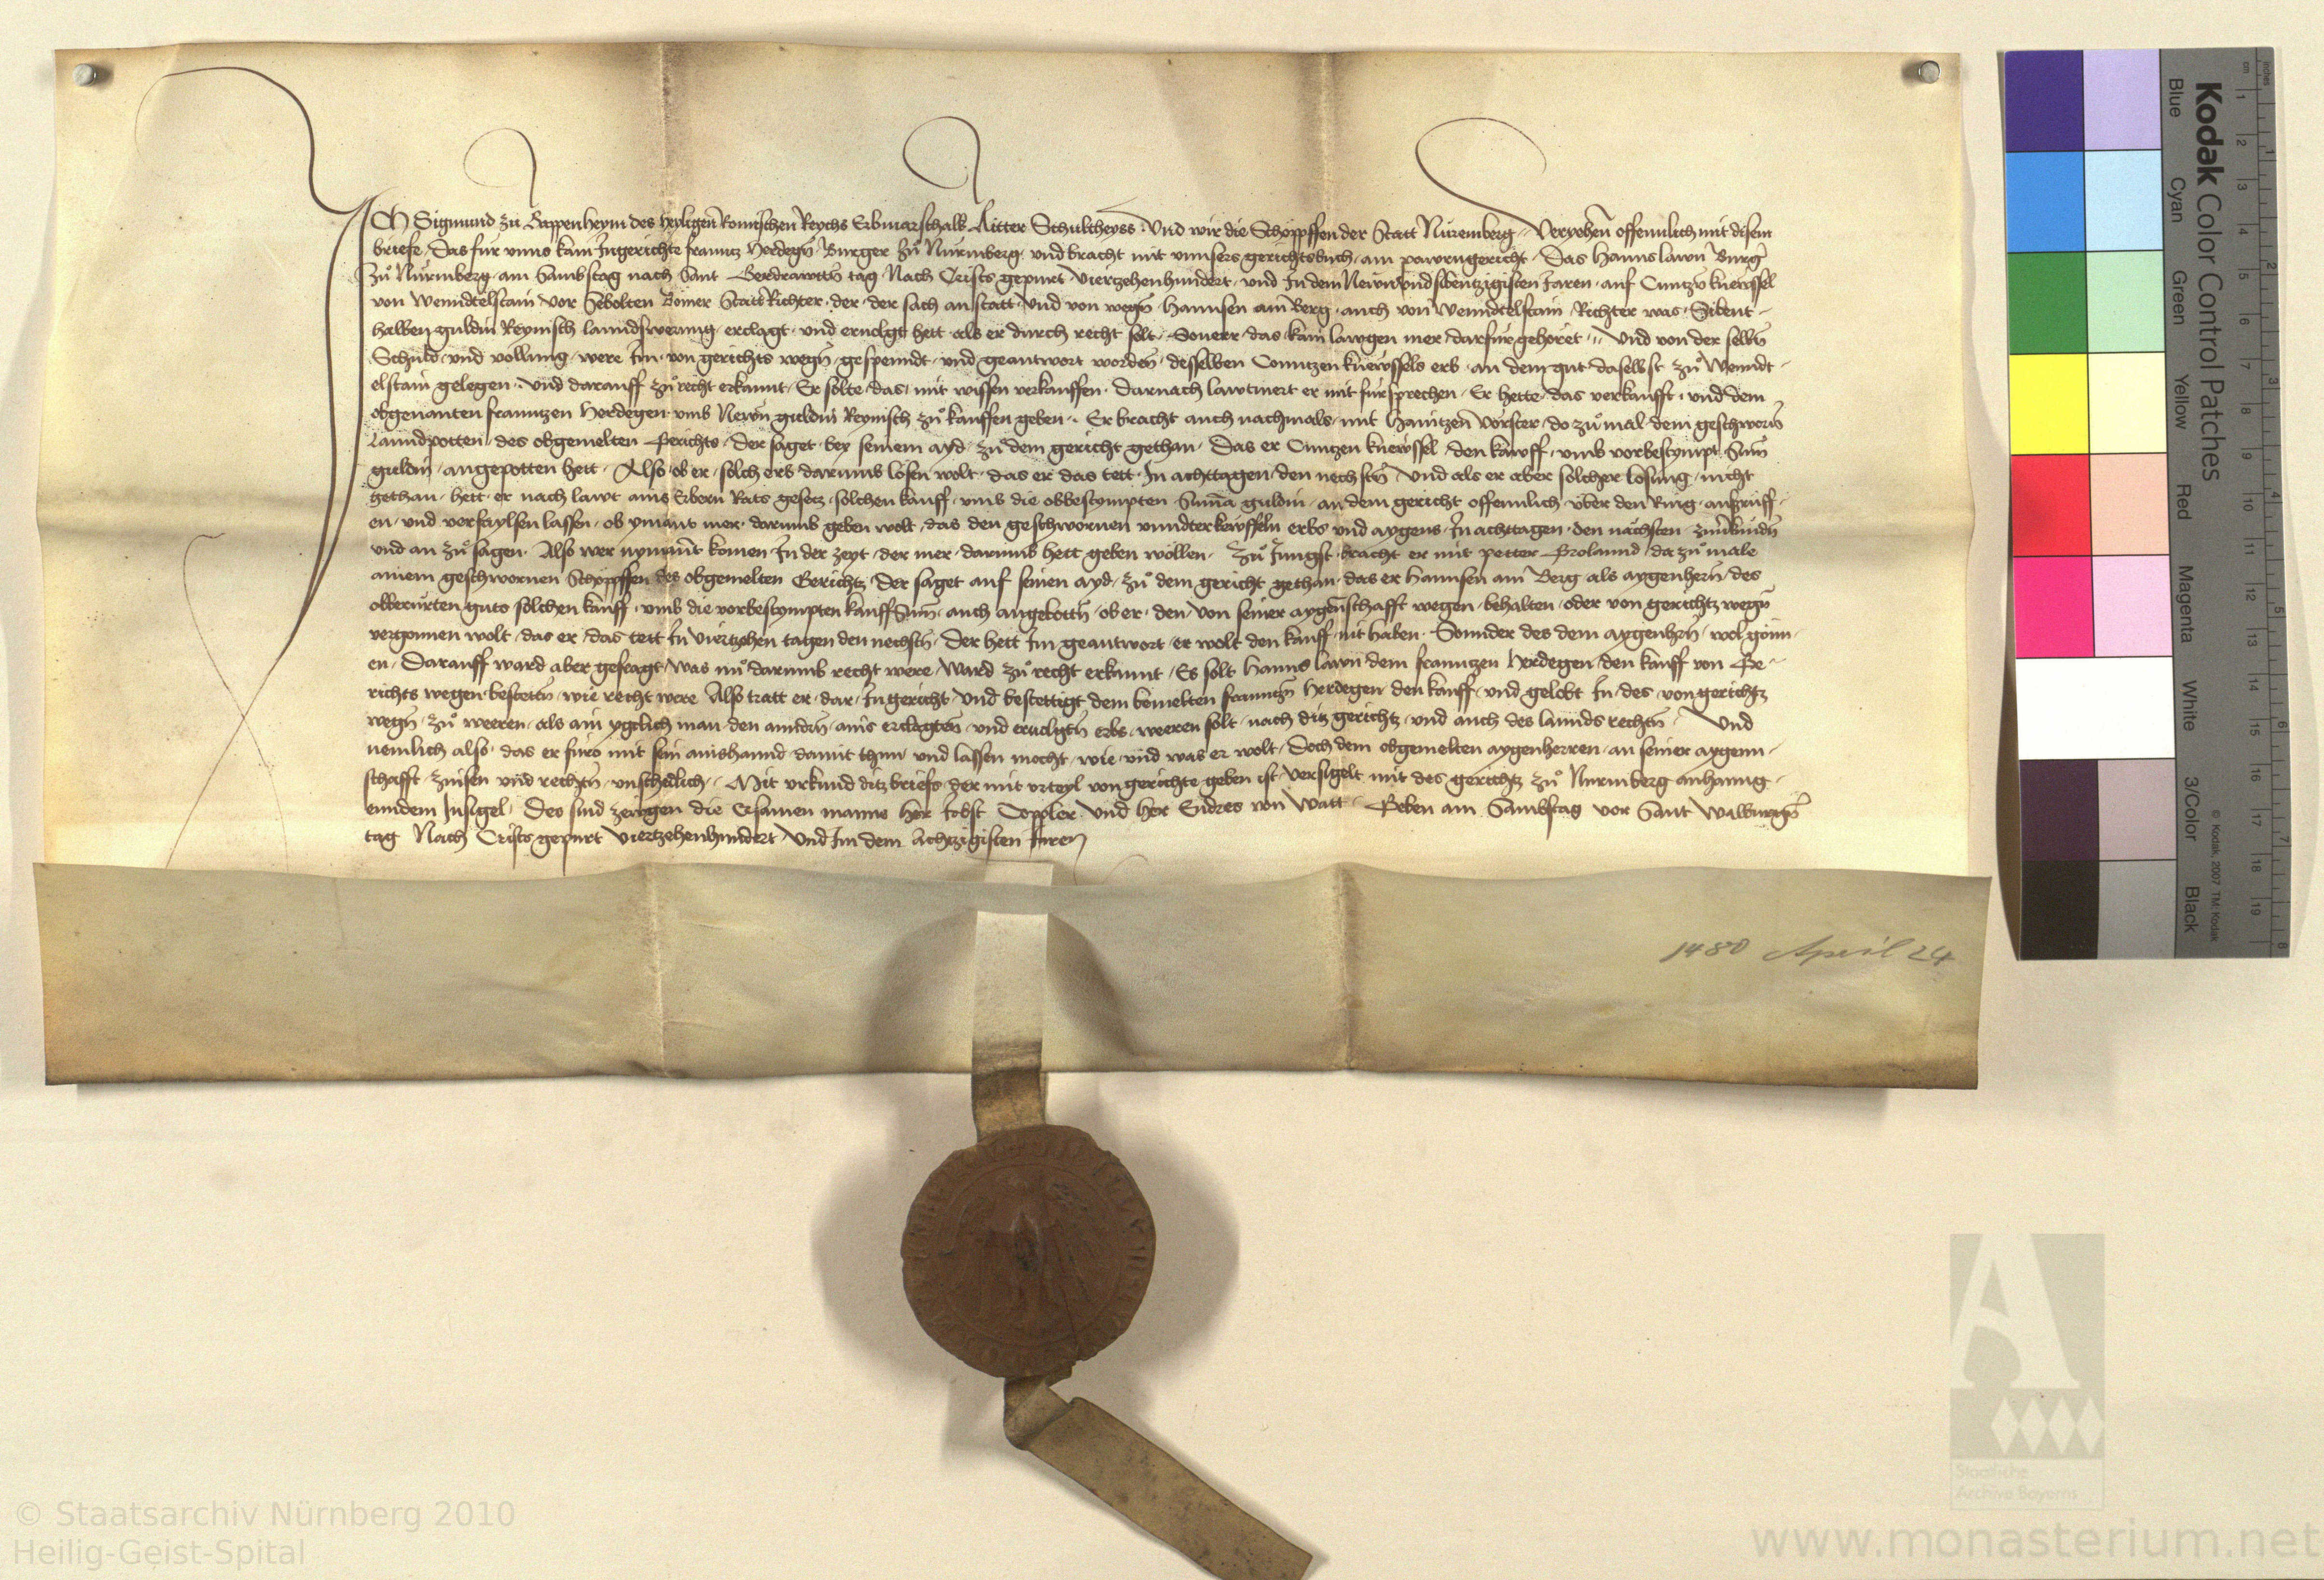 ICH Sigmund zu Bappenheym des heyligen Romischen Reychs Erbmarschalk Ritter Schultheyss · Und wir die Schöppffen der Statt Nüremberg · Veryehen offennlich mit disem
briefe · Das für unns kam Ingerichte franntz Herdegn̄ Burger zů Nüremberg · und bracht mit unnsers gerichtsbuch · am pawrngericht · Das Hanns lawn Burgr̄
zů Nüremberg · am Sambstag nach Sant Gerdrawttn̄ tag Nach Crists gepurt Viertzehenhundert · und In dem Newnundsibentzigisten Jaren · auf Cuntzn̄ knewssel
von Wenndtelstain Vor Sebolten Römer StattRichter · der · der sach anstatt · Und von wegn̄ · Hannsen am Berg · auch von Wenndtelstain · Richter was · Sibent-
halben guldin Reynisch lanndswerung · erclagt · und ervolgt hett · als er durch recht solt · Souerr · das · kain lawgen mer · darfür gehöret · Und von der selbn̄
Schuld · und vollung · were Im · von gerichts wegn̄ · gespenndt · und geantwort worden̄ · desselben Conntzen knewssels erb · an dem gut daselbst zů Wenndt-
elstain gelegen · Und darauff zů recht erkannt · Er solte · das · mit wissen verkauffen · Darnach lawtmert er mit fürsprechen · Er hette · das verkaufft · und dem
obgenanten franntzen Herdegen · umb Newn guldin Reynisch zů kauffen geben · Er bracht auch nachmals · mit Haintzen̄ Vorster · do zů mal · dem geschworn̄
Lanndpotten · des obgemelten Gerichts · der saget · bey seinem ayd · zů dem gericht gethan · Das er Cuntzen knewssel · den kawff · umb vorbestympt Sum̄
guldin · angepotten hett · Also · ob er · solch erb darumb losen wolt · das er das tett · In achttagen · den nechstn̄ · Und als er aber solcher losung · nicht
gethan · hett · er nach lawt ains Erbern Rats gesetz · solchen kauff · umb die obbestympten · Sum̄a guldin · an dem gericht offennlich · über den Ring · aufzrüff-
en · und verfaylsen lassen · ob ymant mer · darumb geben wolt · das den geschwornen unndterkewffeln erbs und aygens · In achttagen · den nächsten · zuuerkünden̄
und an zů sagen · Also wer nymant komen In der zeyt · der mer · darumb hett geben wöllen · Zů Jungst · bracht er mit petter Grolannd · da zů male
ainem geschwornen Schöppffen des obgemelten Gerichtz · Der saget auf seinen ayd · zů dem gericht gethan · das er Hannsen am Berg · als aygenhern̄ · des
obberürten guts solchen kauff · umb die vorbestympten kauffSum̄ · auch angebottn̄ · ob er · den · von seiner aygenschafft wegen · behalten · oder von gerichtz wegn̄
vergonnen wolt · das er · das tett In viertzehen tagen den nechstn̄ · Der hett Im geantwort · er wolt den kauff · nit haben · Sonnder des dem aygenhrn̄ · wol gönn-
en · Darauff ward aber gefragt · was nů darumb recht were · Ward zů recht erkannt · Es solt Hanns lawn dem franntzen Herdegen · den kauff von Ge-
richts wegen · bestettn̄ · wie recht were Also tratt er · dar · In gericht · Und bestettigt dem bemelten franntzn̄ Herdegen den kauff · und gelobt In · des · von gerichtz
wegn̄ · zů weeren · als ain ygelich man · den anndern̄ · ains erclagten̄ · und ervolgtn̄ erbs · weeren solt · nach ditz gerichtz · und auch des lannds rechtn̄ · Und
nemlich also · das er füro mit sein ainshannd · damit thun · und lassen mocht · wie · und was er wolt · Doch dem obgemelten aygenherren · an seiner aygenn-
schafft · zinsen und rechtn̄ · unschedlich · Mit urkund ditz briefs · der mit urteyl von gerichte geben ist · versigelt mit des gerichtz zů Nurmberg anhanng-
enndem Insigel · Des sind zewgen die Ersamen manne Her Jobst Toppler · Und Her Endres von Watt · Geben am Sambstag vor Sant Walburgn̄
tag Nach Cristsgepurt Viertzehenhundert · Und Im dem Achtzigisten Jaren
1480 April 24
Kodak Color Control Patches
Blue Cyan Green Yellow Red Magenta White 3/Color Black
© Kodak, 2007 TM: Kodak
cm 1 2 3 4 5 6 7 8 9 10 11 12 13 14 15 16 17 18 19
inches 1 2 3 4 5 6 7 8
Staatliche
Archive Bayerns
© Staatsarchiv Nürnberg 2010
Heilig-Geist-Spital
www.monasterium.net